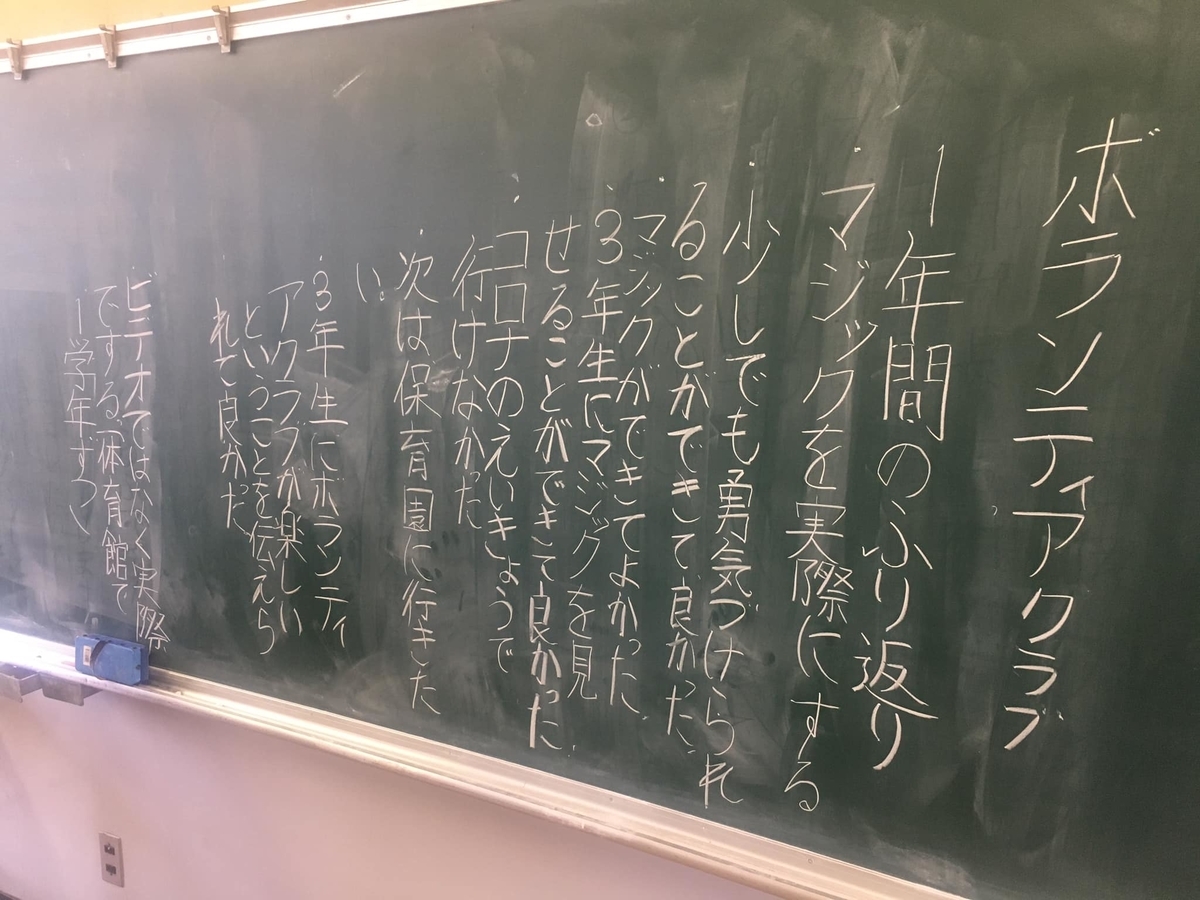 ボランティアクラブ
1年間のふり返り
・マジックを実際にする
・少しでも勇気づけられ
ることができて良かった
・マジックができてよかった
・3年生にマジックを見
せることができて良かった
・コロナのえいきょうで
行けなかった
次は保育園に行きた
い。
・3年生にボランティ
アクラブが楽しい
ということを伝えら
れて良かった
・ビデオではなく実際
でする(体育館で
1学年ずつ)